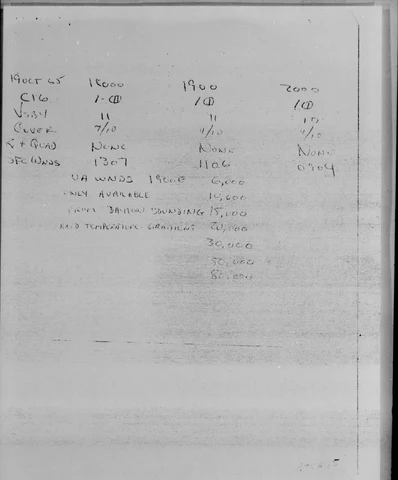 19 OCT 65 18000 1900 2000
CIG 1-⦶ /⦶ /⦶
VSBY 11 11 10
COVER 7/10 4/10 4/10
& QUAD NONE NONE NONE
SFC WNDS 1307 1106 0904
UA WNDS 1900E 6,000
ONLY AVAILABLE 10,600
FROM SOUNDING 15,100
AND TEMPERATURE GRADIENT 20,100
30,000
50,000
80,000